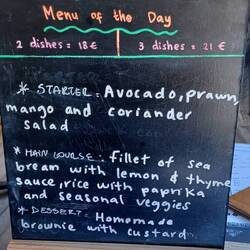 Menu of the Day
2 dishes = 18€ 3 dishes = 21 €
* STARTER: Avocado, prawn,
mango and coriander
salad
* MAIN COURSE: Fillet of sea
bream with lemon & thyme
sauce, rice with paprika
and seasonal veggies
* DESSERT: Homemade
brownie with custard